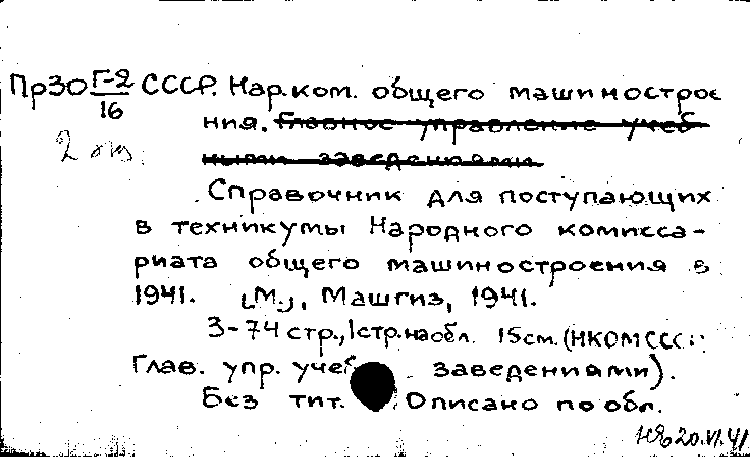 Пр30 Г-2/16 СССР. Нар.ком. общего машинострое
ния. Главное управление учеб
ными заведениями.
2 экз.
Справочник для поступающих
в техникумы Народного комисса-
риата общего машиностроения в
1941. [М.], Машгиз, 1941.
3-74 стр., 1 стр. на обл. 15 см. (НКОМ СССР.
Глав. упр. учеб. заведениями).
Без тит. Описано по обл.
20.VI.41